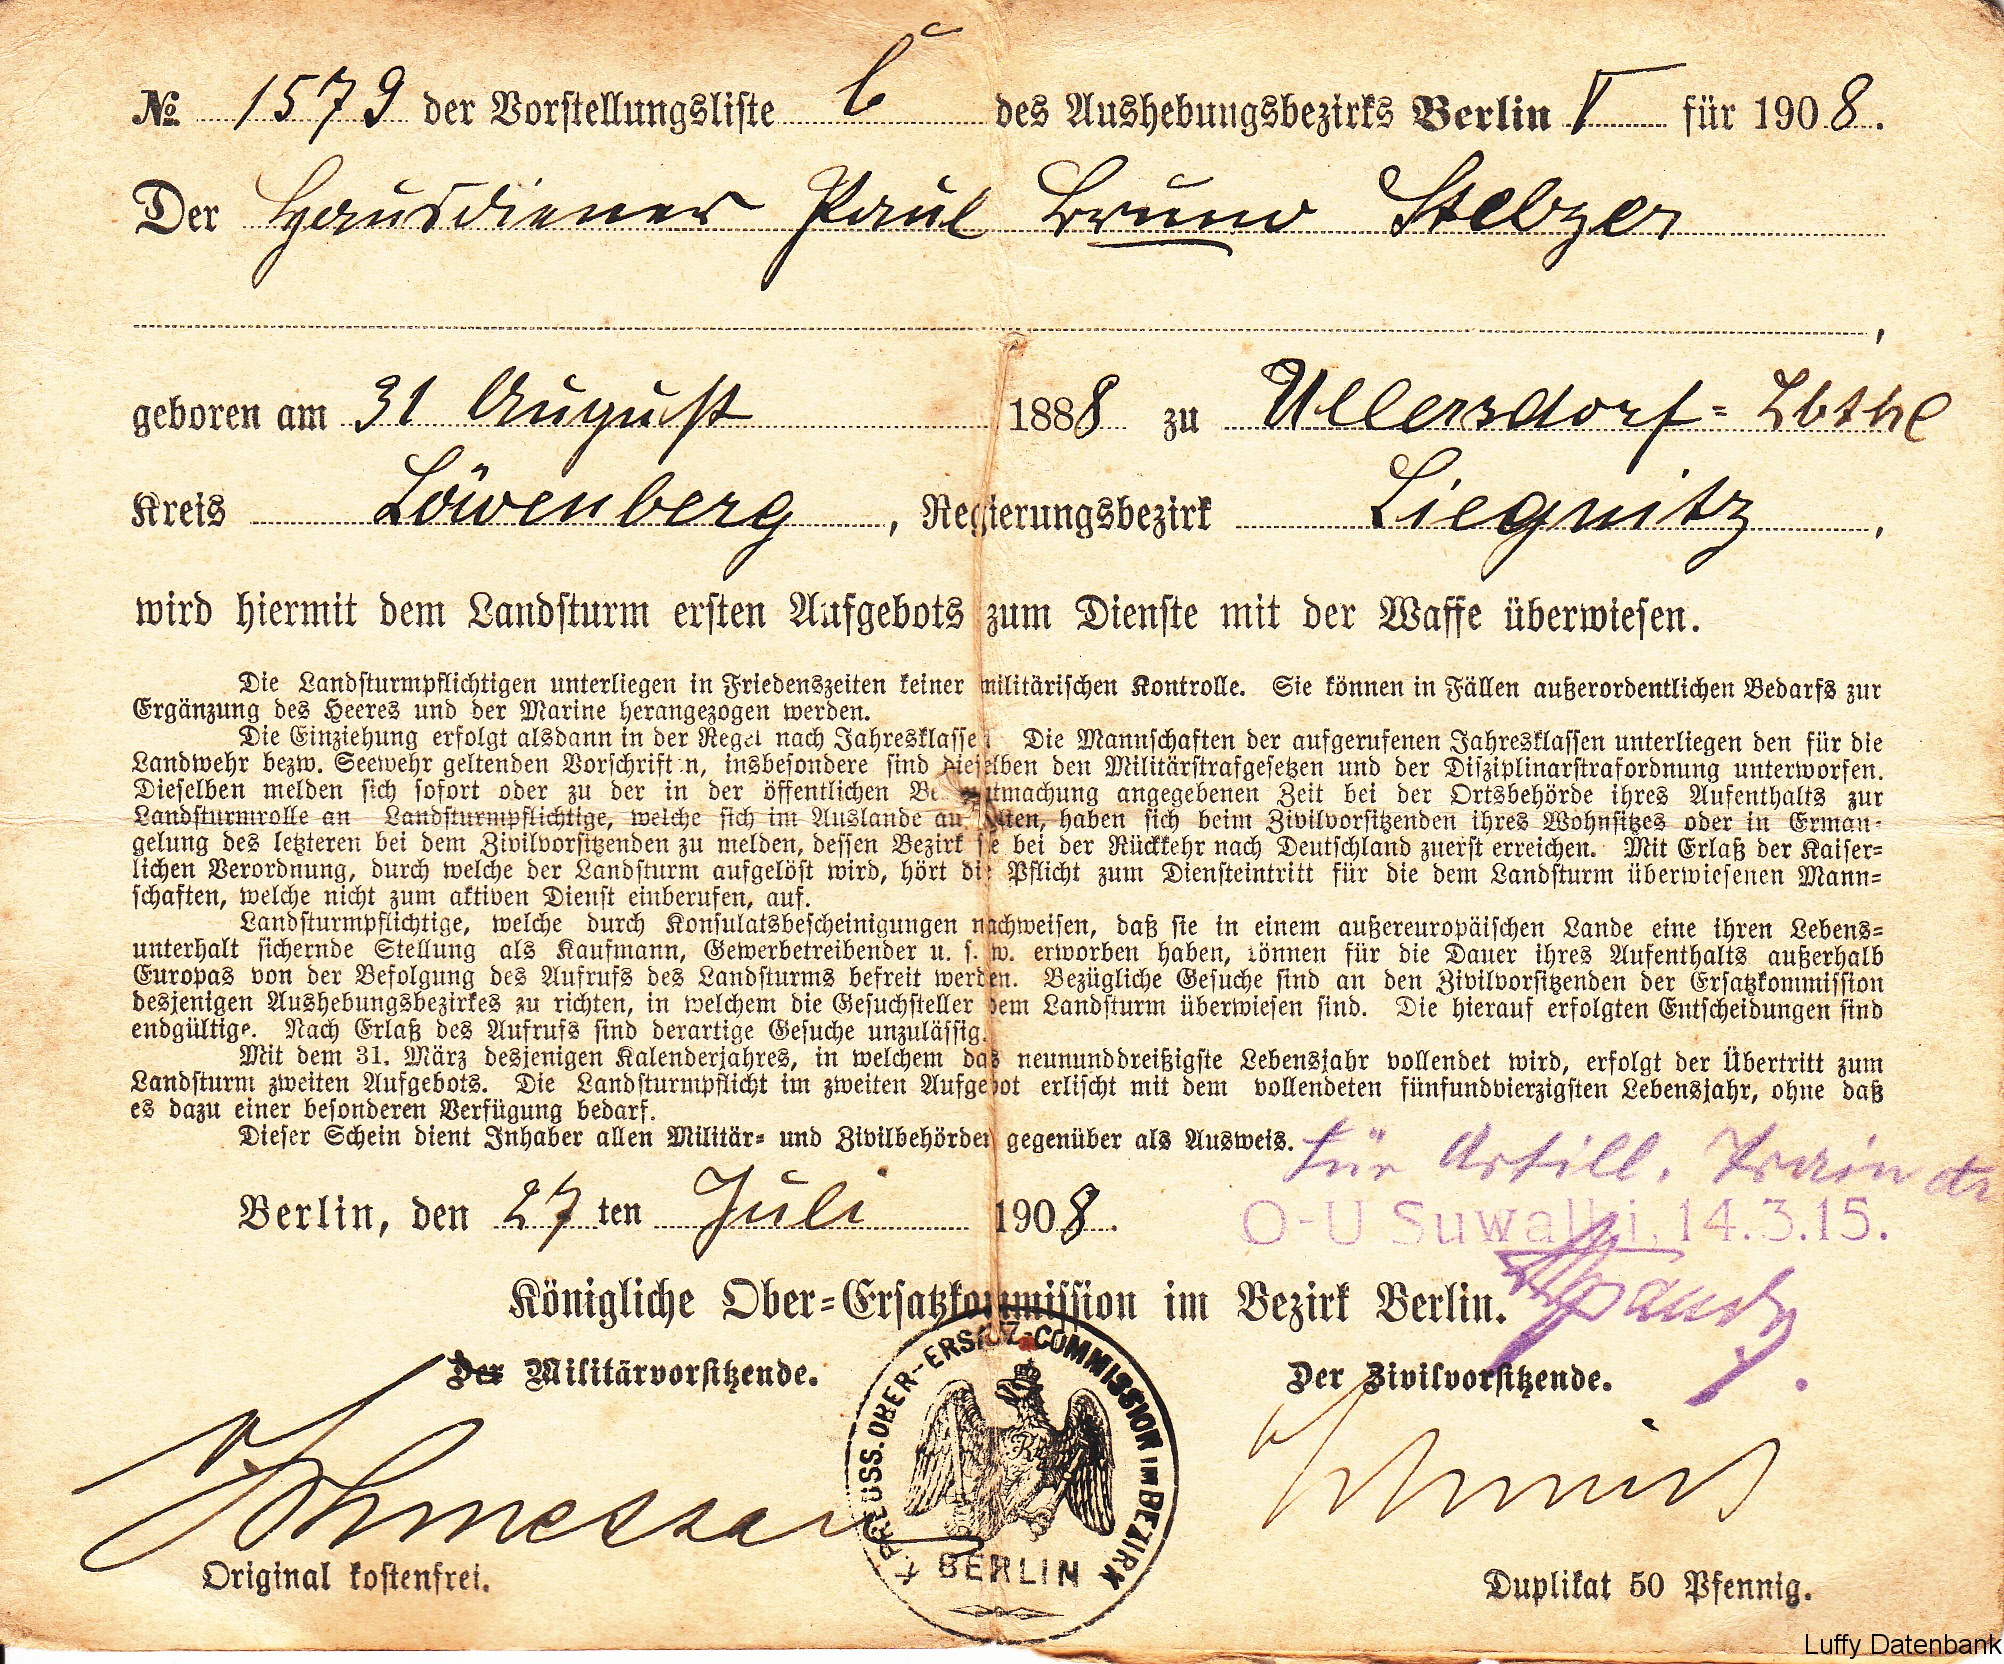 № 1579 der Vorstellungsliste C des Aushebungsbezirks Berlin V für 1908.
Der Hausdiener Paul Bruno Stelzer
geboren am 31 August 1888 zu Ullersdorf=Lbthl
Kreis Löwenberg, Regierungsbezirk Liegnitz,
wird hiermit dem Landsturm ersten Aufgebots zum Dienste mit der Waffe überwiesen.
Die Landsturmpflichtigen unterliegen in Friedenszeiten keiner militärischen Kontrolle. Sie können in Fällen außerordentlichen Bedarfs zur
Ergänzung des Heeres und der Marine herangezogen werden.
Die Einziehung erfolgt alsdann in der Regel nach Jahresklassen. Die Mannschaften der aufgerufenen Jahresklassen unterliegen den für die
Landwehr bezw. Seewehr geltenden Vorschriften, insbesondere sind dieselben den Militärstrafgesetzen und der Disziplinarstrafordnung unterworfen.
Dieselben melden sich sofort oder zu der in der öffentlichen Bekanntmachung angegebenen Zeit bei der Ortsbehörde ihres Aufenthalts zur
Landsturmrolle an Landsturmpflichtige, welche sich im Auslande aufhalten, haben sich beim Zivilvorsitzenden ihres Wohnsitzes oder in Erman-
gelung des letzteren bei dem Zivilvorsitzenden zu melden, dessen Bezirk sie bei der Rückkehr nach Deutschland zuerst erreichen. Mit Erlaß der Kaiser-
lichen Verordnung, durch welche der Landsturm aufgelöst wird, hört die Pflicht zum Diensteintritt für die dem Landsturm überwiesenen Mann-
schaften, welche nicht zum aktiven Dienst einberufen, auf.
Landsturmpflichtige, welche durch Konsulatsbescheinigungen nachweisen, daß sie in einem außereuropäischen Lande eine ihren Lebens-
unterhalt sichernde Stellung als Kaufmann, Gewerbetreibender u. s. w. erworben haben, können für die Dauer ihres Aufenthalts außerhalb
Europas von der Befolgung des Aufrufs des Landsturms befreit werden. Bezügliche Gesuche sind an den Zivilvorsitzenden der Ersatzkommission
desjenigen Aushebungsbezirkes zu richten, in welchem die Gesuchsteller dem Landsturm überwiesen sind. Die hierauf erfolgten Entscheidungen sind
endgültige. Nach Erlaß des Aufrufs sind derartige Gesuche unzulässig.
Mit dem 31. März desjenigen Kalenderjahres, in welchem das neununddreißigste Lebensjahr vollendet wird, erfolgt der Übertritt zum
Landsturm zweiten Aufgebots. Die Landsturmpflicht im zweiten Aufgebot erlischt mit dem vollendeten fünfundvierzigsten Lebensjahr, ohne daß
es dazu einer besonderen Verfügung bedarf.
Dieser Schein dient Inhaber allen Militär- und Zivilbehörden gegenüber als Ausweis.
Für Artill. Train
Berlin, den 27ten Juli 1908.
O-U Suwalki, 14.3.15.
Königliche Ober-Ersatzkommission im Bezirk Berlin.
Der Militärvorsitzende. Der Zivilvorsitzende.
K. PREUSS. OBER-ERSATZ-COMMISSION IM BEZIRK
BERLIN
Original kostenfrei. Duplikat 50 Pfennig.
Luffy Datenbank